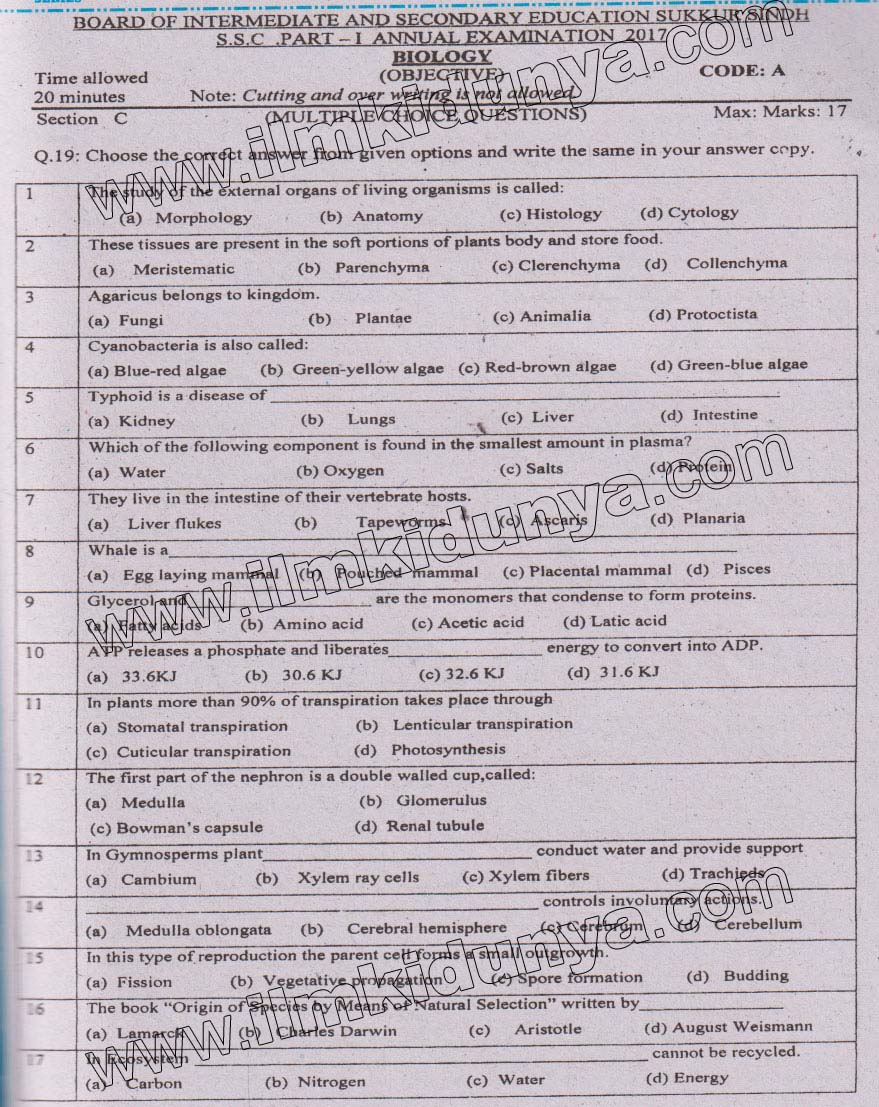 BOARD OF INTERMEDIATE AND SECONDARY EDUCATION SUKKUR SINDH
S.S.C .PART – I ANNUAL EXAMINATION 2017
BIOLOGY
Time allowed (OBJECTIVE) CODE: A
20 minutes Note: Cutting and over writing is not allowed.
Section C (MULTIPLE CHOICE QUESTIONS) Max: Marks: 17
Q.19: Choose the correct answer from given options and write the same in your answer copy.
1 The study of the external organs of living organisms is called:
(a) Morphology (b) Anatomy (c) Histology (d) Cytology
2 These tissues are present in the soft portions of plants body and store food.
(a) Meristematic (b) Parenchyma (c) Clerenchyma (d) Collenchyma
3 Agaricus belongs to kingdom.
(a) Fungi (b) Plantae (c) Animalia (d) Protoctista
4 Cyanobacteria is also called:
(a) Blue-red algae (b) Green-yellow algae (c) Red-brown algae (d) Green-blue algae
5 Typhoid is a disease of
(a) Kidney (b) Lungs (c) Liver (d) Intestine
6 Which of the following component is found in the smallest amount in plasma?
(a) Water (b) Oxygen (c) Salts (d) Protein
7 They live in the intestine of their vertebrate hosts.
(a) Liver flukes (b) Tapeworms (c) Ascaris (d) Planaria
8 Whale is a
(a) Egg laying mammal (b) Pouched mammal (c) Placental mammal (d) Pisces
9 Glycerol and ____ are the monomers that condense to form proteins.
(a) Fatty acids (b) Amino acid (c) Acetic acid (d) Latic acid
10 ATP releases a phosphate and liberates____ energy to convert into ADP.
(a) 33.6KJ (b) 30.6 KJ (c) 32.6 KJ (d) 31.6 KJ
11 In plants more than 90% of transpiration takes place through
(a) Stomatal transpiration (b) Lenticular transpiration
(c) Cuticular transpiration (d) Photosynthesis
12 The first part of the nephron is a double walled cup,called:
(a) Medulla (b) Glomerulus
(c) Bowman's capsule (d) Renal tubule
13 In Gymnosperms plant____ conduct water and provide support
(a) Cambium (b) Xylem ray cells (c) Xylem fibers (d) Trachieds
14 ____ controls involuntary actions.
(a) Medulla oblongata (b) Cerebral hemisphere (c) Cerebrum (d) Cerebellum
15 In this type of reproduction the parent cell forms a small outgrowth.
(a) Fission (b) Vegetative propagation (c) Spore formation (d) Budding
16 The book "Origin of Species by Means of Natural Selection" written by____
(a) Lamarck (b) Charles Darwin (c) Aristotle (d) August Weismann
17 In Ecosystem ____ cannot be recycled.
(a) Carbon (b) Nitrogen (c) Water (d) Energy
www.ilmkidunya.com
www.ilmkidunya.com
www.ilmkidunya.com